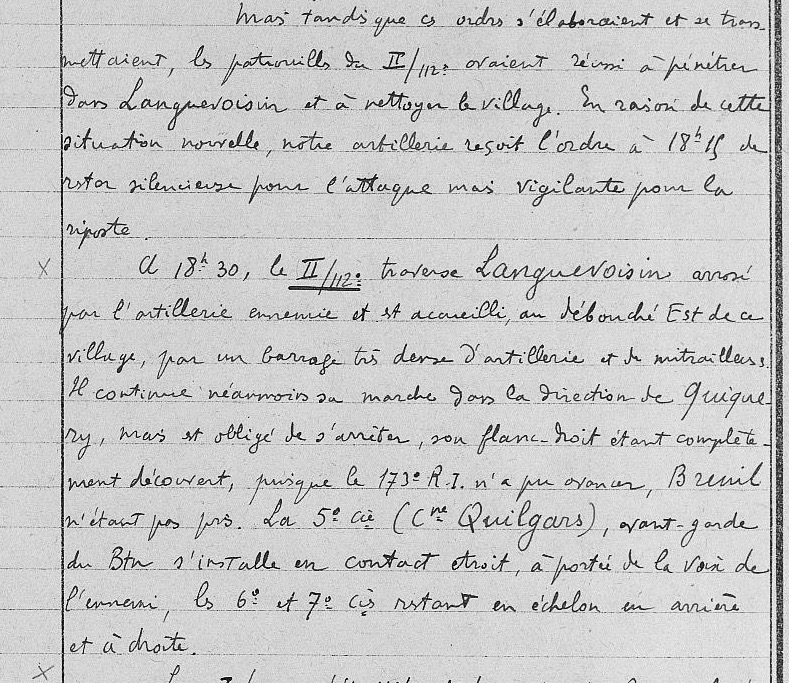 Mais tandis que ces ordres s'élaboraient et se trans-
mettaient, les patrouilles du II/112e avaient réussi à pénétrer
dans Languevoisin et à nettoyer le village. En raison de cette
situation nouvelle, notre artillerie reçoit l'ordre à 18h15 de
rester silencieuse pour l'attaque mais vigilante pour la
riposte.
X A 18h30, le II/112e traverse Languevoisin arrosé
par l'artillerie ennemie et est accueilli, au débouché Est de ce
village, par un barrage très dense d'artillerie et de mitrailleuses.
Il continue néanmoins sa marche dans la direction de Quique-
ry, mais est obligé de s'arrêter, son flanc-droit étant complète-
ment découvert, puisque le 173e R.I. n'a pu avancer, Breuil
n'étant pas pris. La 5e Cie (Cne Quilgars), avant-garde
du Btn s'installe en contact etroit, à portée de la voix de
l'ennemi, les 6e et 7e Cies restant en échelon en arrière
et à droite.
X